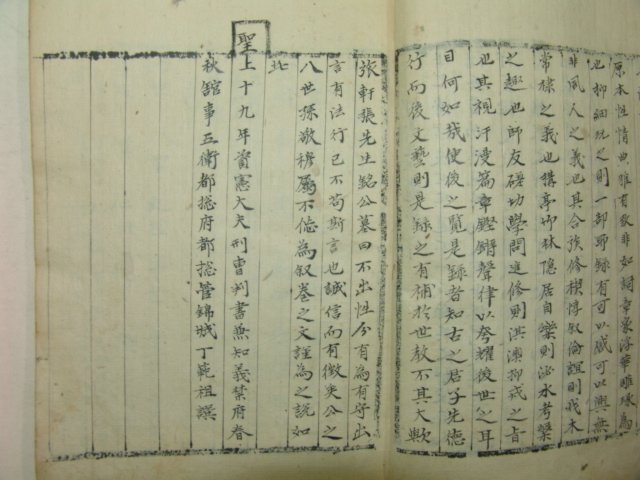 原本性情典雅有致非如詞章家浮華雕琢爲
也抑細玩之則一部耶錄有可以感可以興無
非風人之義也其合族修稧惇叙倫誼則伐木
常棣之義也構亭竹林隱居自樂則泌水考槃
之趣也師友磋切學問進修則淇澳抑戒之旨
也其視汗漫篇章鏗鏘聲律以夸耀後世之耳
目何如哉使後之覽是錄者知古之君子先德
行而後文藝則是錄之有補於世教不其大歟
張軒張先生銘公墓曰不出性分有為有守出
言有法行己不苟斯言也誠信而有徵矣公之
八世孫敬穆屬不佞為叙卷之文謹為之說如
此
聖上十九年資憲大夫刑曹判書兼知義禁府春
秋館事五衛都摠府都摠管錦城丁範祖譔